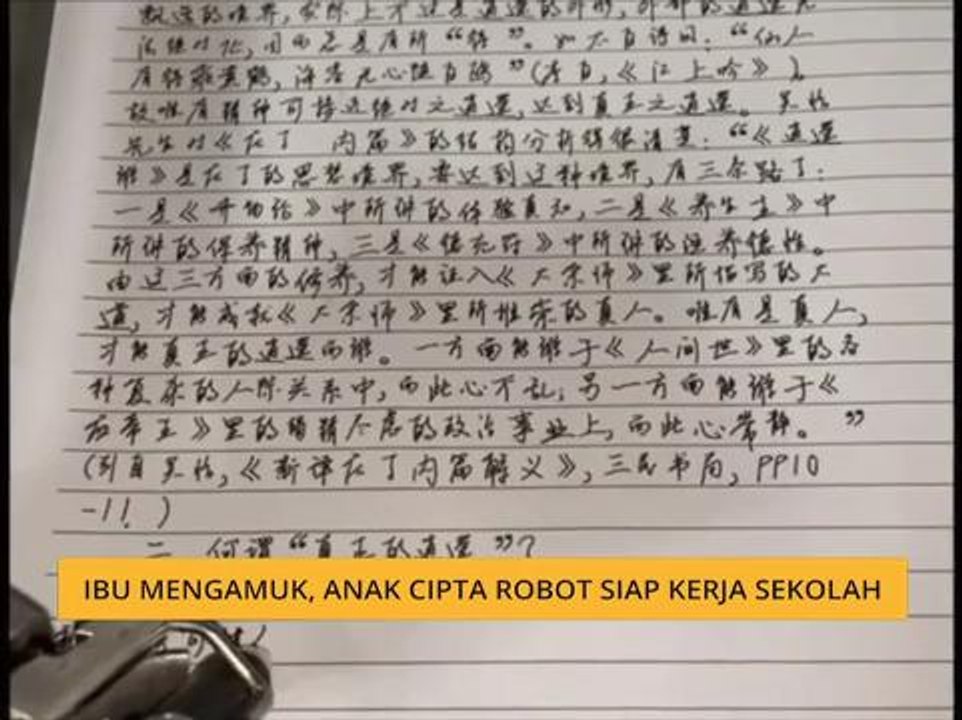 飘逸的境界，实际上不过是逍遥的外形，外部的逍遥无
法绝对化，因而总是有所“待”。如太白诗曰：“仙人
有待乘黄鹤，海客无心随白鸥”（李白，《江上吟》）。
故唯有精神可接近绝对之逍遥，达到真正之逍遥。吴怡
先生对《庄子 内篇》的结构分析得很清楚：“《逍遥
游》是庄子的思想境界，要达到这种境界，有三条路子：
一是《齐物论》中所讲的体验真知，二是《养生主》中
所讲的保养精神，三是《德充符》中所讲的涵养德性。
由这三方面的修养，才能证入《大宗师》里所描写的大
道，才能成就《大宗师》里所推崇的真人。唯有是真人，
才能真正的逍遥而游。一方面能游于《人间世》里的各
种复杂的人际关系中，而此心不乱；另一方面能游于《
应帝王》里的殚精尽虑的政治事业上，而此心常静。”
（引自吴怡，《新译庄子内篇解义》，三民书局，PP10
-11。）
二 何谓“真正的逍遥”？
IBU MENGAMUK, ANAK CIPTA ROBOT SIAP KERJA SEKOLAH